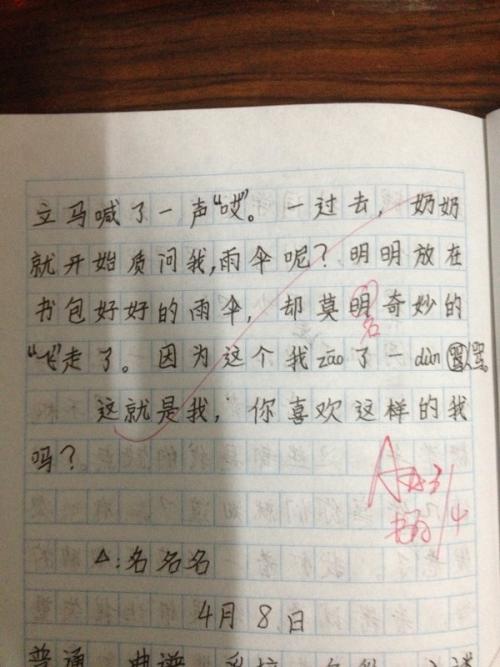 立马喊了一声“哎”。一过去，奶奶
就开始质问我，雨伞呢？明明放在
书包好好的雨伞，却莫明奇妙的
名
“飞”走了。因为这个我zāo了一dùn 骂。
这就是我，你喜欢这样的我
吗？
△：名名名
4月8日
普通